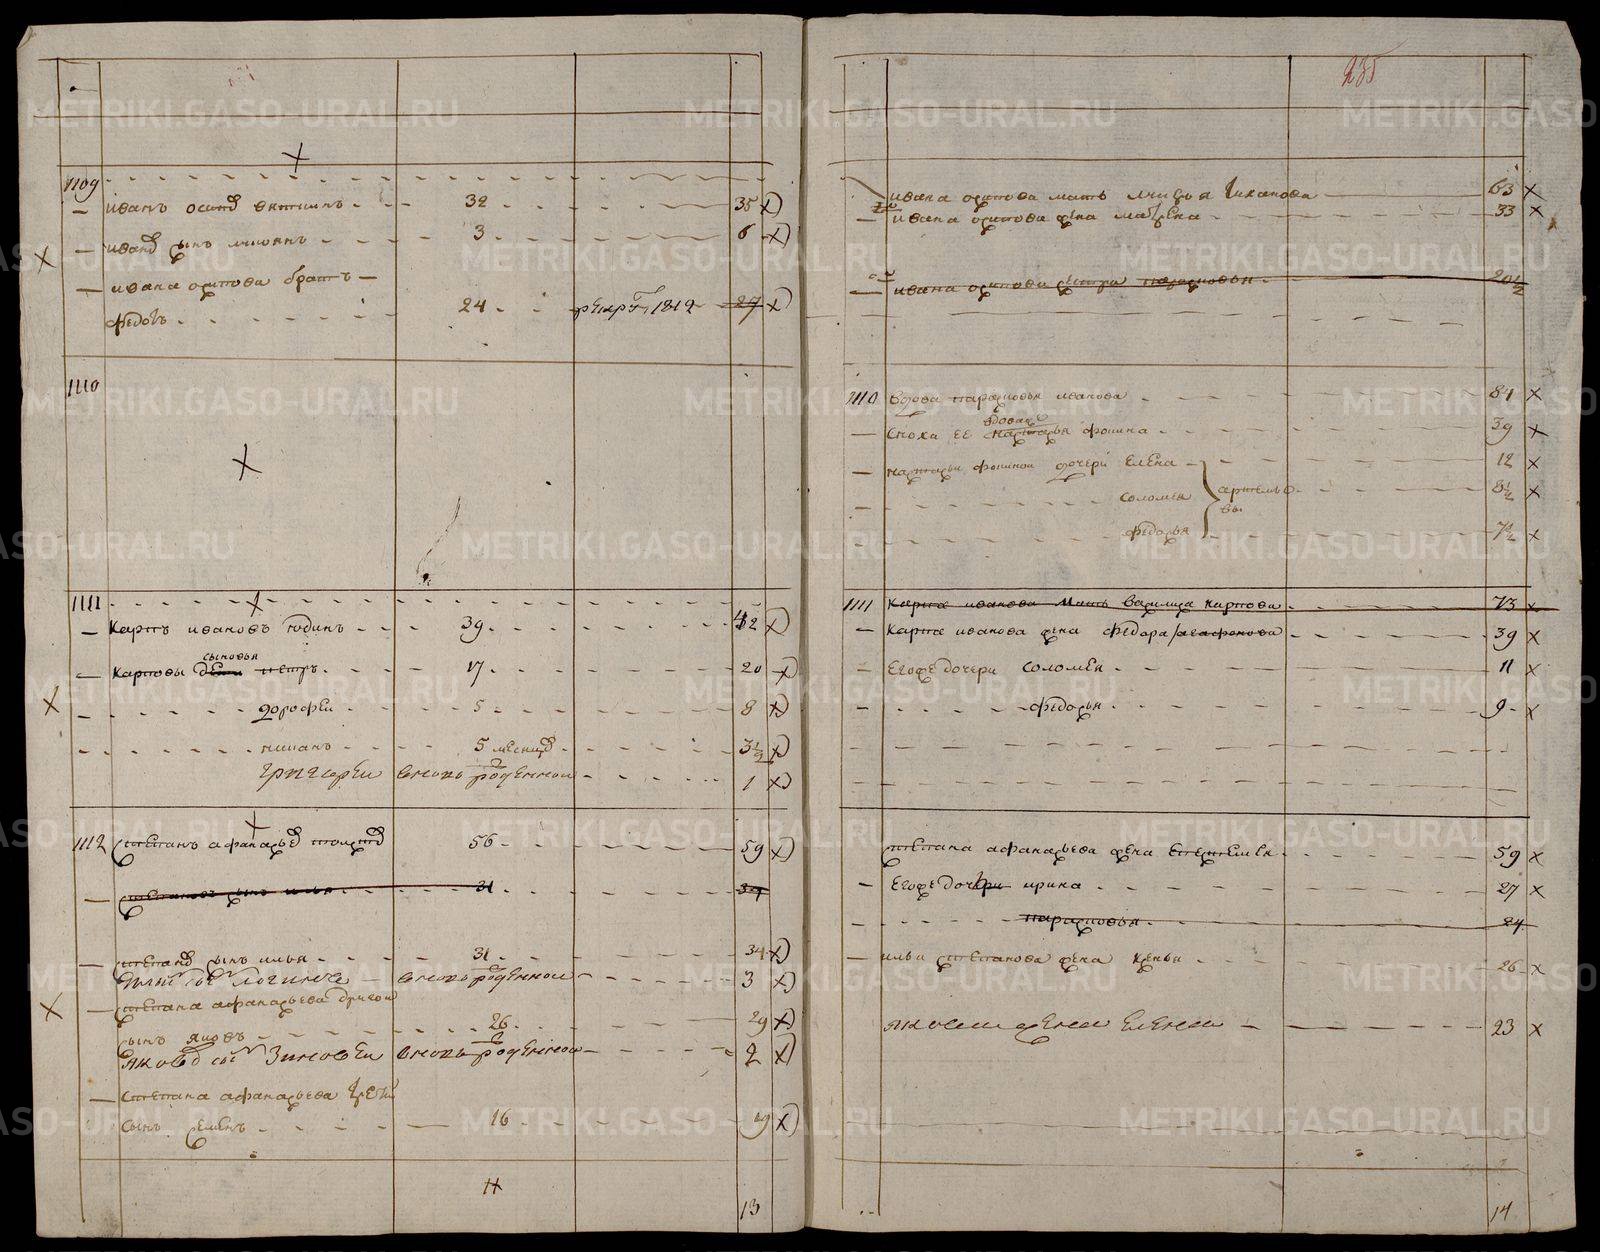 235
1109
иванъ осиповъ 32 35
ивановъ сынъ 3 6
ивана осипова братъ
федоръ 24 рекрутъ 1812 27
ивана осипова мать 63
ивана осипова жена матрена 33
ивана осипова сестра парасковья 20½
1110
1110 вдова парасковья ивановна 84
вдовая
сноха ее фомина 39
фоминой дочери елена 12
соломея 8½
федосья 7½
1111
карпъ ивановъ юдинъ 39 42
сыновья
карповы дети петръ 17 20
дорофеи 5 8
5 месяцовъ 3½
григореи вновь рожденной 1
1111 карпа иванова мать василиса карпова 73
карпа иванова жена федора агафонова 39
его же дочери соломея 11
федосья 9
1112 степанъ афанасьевъ 56 59
степановъ сынъ илья 31 34
степановъ сынъ илья 31 34
вновь рожденной 3
степана афанасьева другой
сынъ яковъ 26 29
яковъ сынъ Зиновеи вновь рожденной 2
степана афанасьева третей
сынъ семенъ 16 19
11 13
степана афанасьева жена 59
его же дочери ирина 27
парасковья 24
ильи степанова жена 26
якова жена елена 23
14
METRIKI.GASO-URAL.RU